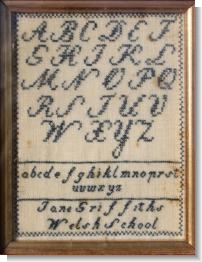 A B C D E F
G H I K L
M N O P Q
R S T U V
W X Y Z
a b c d e f g h i k l m n o p r s t
u v w x y z
Jane Griffiths
Welsh School